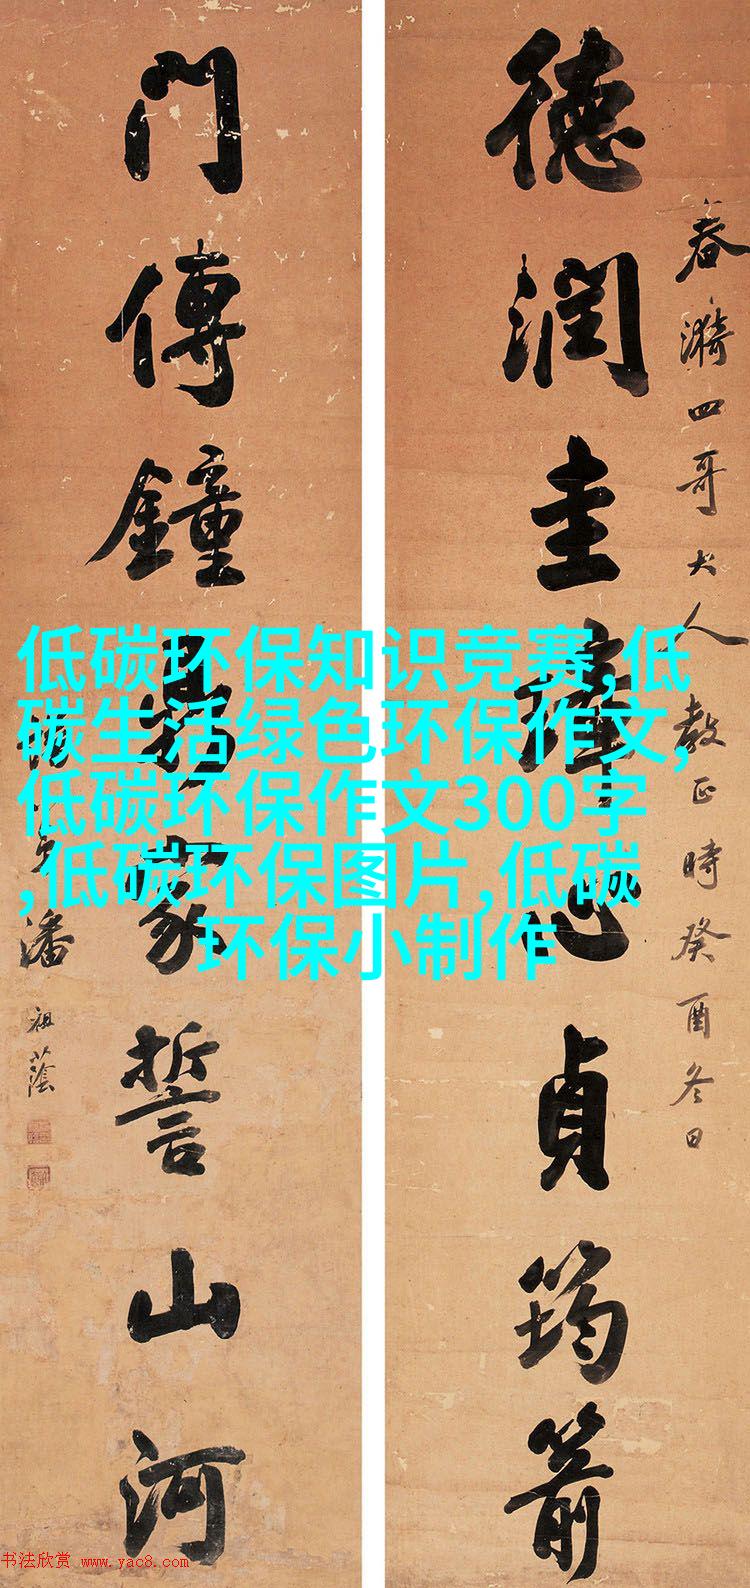 春漪四哥大人教正時癸酉冬日
德潤圭璋心貞筠箭
門傳鐘鼎家誓山河
潘祖蔭
低碳环保知识竞赛,低
碳生活绿色环保作文,
低碳环保作文300字
,低碳环保图片,低碳
环保小制作
书法欣赏 www.yac8.com